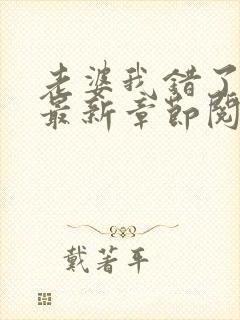 老婆我错了
最新章节阅
戴著平